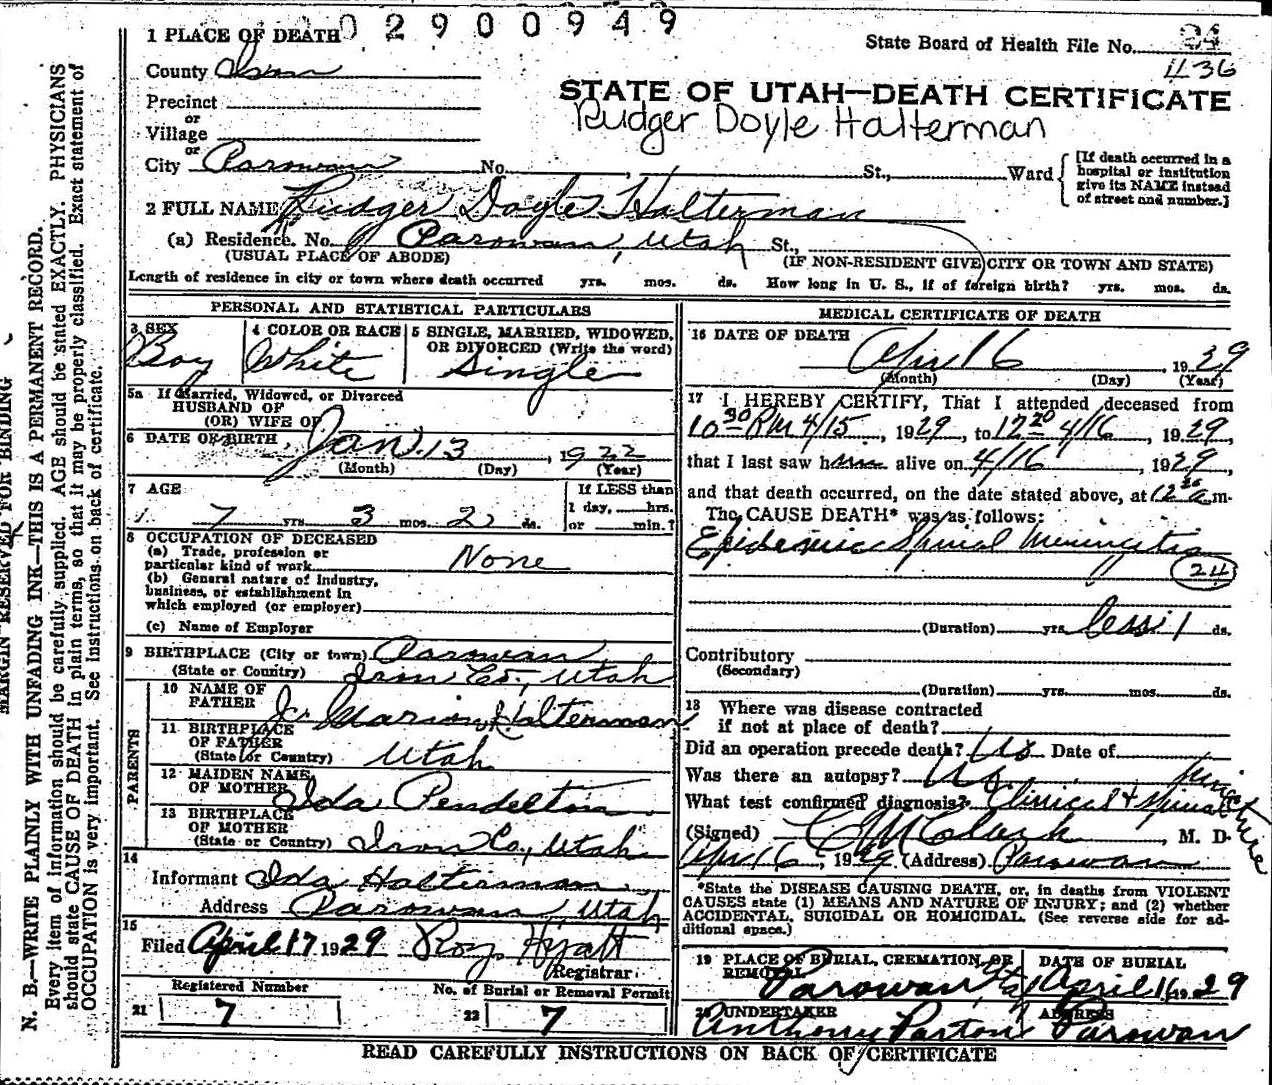 0 2 9 0 0 9 4 9
1 PLACE OF DEATH
State Board of Health File No. 24
436
County Iron
STATE OF UTAH—DEATH CERTIFICATE
Rudger Doyle Halterman
Precinct
or
Village
or
City Parowan No. St., Ward
[If death occurred in a
hospital or institution
give its NAME instead
of street and number.]
2 FULL NAME Rudger Doyle Halterman
(a) Residence. No. Parowan, Utah St.,
(USUAL PLACE OF ABODE) (IF NON-RESIDENT GIVE CITY OR TOWN AND STATE)
Length of residence in city or town where death occurred yrs. mos. ds. How long in U. S., if of foreign birth? yrs. mos. ds.
PERSONAL AND STATISTICAL PARTICULARS
3 SEX
Boy
4 COLOR OR RACE
White
5 SINGLE, MARRIED, WIDOWED,
OR DIVORCED (Write the word)
Single
5a If Married, Widowed, or Divorced
HUSBAND OF
(OR) WIFE OF
6 DATE OF BIRTH Jan. 13, 1922
(Month) (Day) (Year)
7 AGE
7 yrs. 3 mos. 2 ds.
If LESS than
1 day, hrs.
or min.?
8 OCCUPATION OF DECEASED
(a) Trade, profession or
particular kind of work None
(b) General nature of industry,
business, or establishment in
which employed (or employer)
(c) Name of Employer
9 BIRTHPLACE (City or town) Parowan
(State or Country) Iron Co., Utah
PARENTS
10 NAME OF
FATHER Marion Halterman
11 BIRTHPLACE
OF FATHER
(State or Country) Utah
12 MAIDEN NAME
OF MOTHER Ida Pendelton
13 BIRTHPLACE
OF MOTHER
(State or Country) Iron Co., Utah
14
Informant Ida Halterman
Address Parowan, Utah
15
Filed April 17 1929 Roy Hyatt
Registrar
Registered Number No. of Burial or Removal Permit
21 7 22 7
MEDICAL CERTIFICATE OF DEATH
16 DATE OF DEATH
April 16, 1929
(Month) (Day) (Year)
17 I HEREBY CERTIFY, That I attended deceased from
10 30 PM 4/15, 1929, to 12 20 4/16, 1929,
that I last saw him alive on 4/16, 1929,
and that death occurred, on the date stated above, at 12 20 a m.
The CAUSE DEATH* was as follows:
Epidemic Spinal Meningitis
24
(Duration) yrs. less 1 ds.
Contributory
(Secondary)
(Duration) yrs. mos. ds.
18 Where was disease contracted
if not at place of death?
Did an operation precede death? No Date of
Was there an autopsy? No
What test confirmed diagnosis? Clinical & Spinal puncture
(Signed) M. D.
Apr 16, 1929 (Address) Parowan
*State the DISEASE CAUSING DEATH, or, in deaths from VIOLENT
CAUSES state (1) MEANS AND NATURE OF INJURY; and (2) whether
ACCIDENTAL, SUICIDAL OR HOMICIDAL. (See reverse side for ad-
ditional space.)
19 PLACE OF BURIAL, CREMATION, OR
REMOVAL
Parowan, Utah
DATE OF BURIAL
April 16 1929
20 UNDERTAKER
Anthony Paxton
ADDRESS
Parowan
READ CAREFULLY INSTRUCTIONS ON BACK OF CERTIFICATE
MARGIN RESERVED FOR BINDING
N. B.—WRITE PLAINLY WITH UNFADING INK—THIS IS A PERMANENT RECORD.
Every item of information should be carefully supplied. AGE should be stated EXACTLY. PHYSICIANS
should state CAUSE OF DEATH in plain terms, so that it may be properly classified. Exact statement of
OCCUPATION is very important. See instructions on back of certificate.